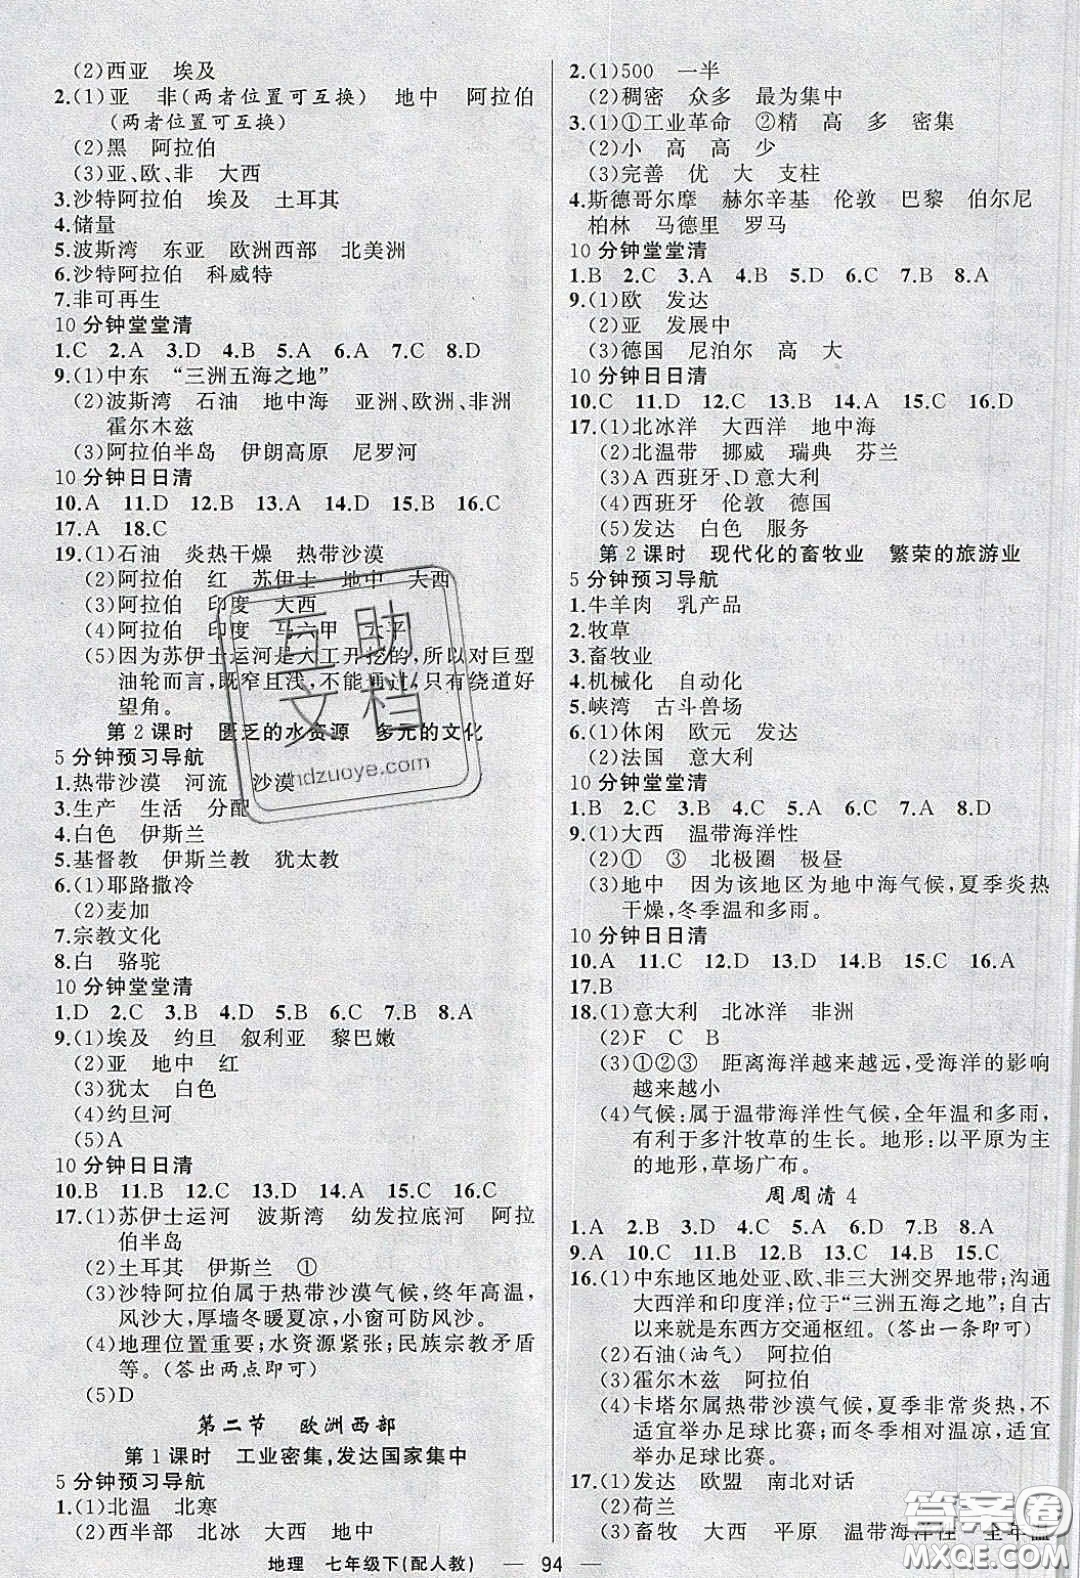 (2)西亚　埃及
2.(1)亚　非(两者位置可互换)　地中　阿拉伯
(两者位置可互换)
(2)黑　阿拉伯
(3)亚、欧、非　大西
3.沙特阿拉伯　埃及　土耳其
4.储量
5.波斯湾　东亚　欧洲西部　北美洲
6.沙特阿拉伯　科威特
7.非可再生
10 分钟堂堂清
1.C　2.A　3.D　4.B　5.A　6.A　7.C　8.D
9.(1)中东　“三洲五海之地”
(2)波斯湾　石油　地中海　亚洲、欧洲、非洲
霍尔木兹
(3)阿拉伯半岛　伊朗高原　尼罗河
10 分钟日日清
10.A　11.D　12.B　13.D　14.D　15.B　16.C
17.A　18.C
19.(1)石油　炎热干燥　热带沙漠
(2)阿拉伯　红　苏伊士　地中　大西
(3)阿拉伯　印度　大西
(4)阿拉伯　印度　马六甲　太平
(5)因为苏伊士运河是人工开挖的,所以对巨型
油轮而言,既窄且浅,不能通过,只有绕道好
望角。
第 2 课时　匮乏的水资源　多元的文化
5 分钟预习导航
1.热带沙漠　河流　沙漠
3.生产　生活　分配
4.白色　伊斯兰
5.基督教　伊斯兰教　犹太教
6.(1)耶路撒冷
(2)麦加
7.宗教文化
8.白　骆驼
10 分钟堂堂清
1.D　2.C　3.B　4.D　5.D　6.C　7.B　8.A
9.(1)埃及　约旦　叙利亚　黎巴嫩
(2)亚　地中　红
(3)犹太　白色
(4)约旦河
(5)A
10 分钟日日清
10.B　11.B　12.C　13.D　14.D　15.C　16.C
17.(1)苏伊士运河　波斯湾　幼发拉底河　阿拉
伯半岛
(2)土耳其　伊斯兰　①
(3)沙特阿拉伯属于热带沙漠气候,终年高温,
风沙大,厚墙冬暖夏凉,小窗可防风沙。
(4)地理位置重要;水资源紧张;民族宗教矛盾
等。(答出两点即可)
(5)D
第二节　欧洲西部
第 1 课时　工业密集,发达国家集中
5 分钟预习导航
1.(1)北温　北寒
(2)西半部　北冰　大西　地中
2.(1)500　一半
(2)稠密　众多　最为集中
3.(1)①工业革命　②精　高　多　密集
(2)小　高　高　少
(3)完善　优　大　支柱
4.斯德哥尔摩　赫尔辛基　伦敦　巴黎　伯尔尼
柏林　马德里　罗马
10 分钟堂堂清
1.B　2.C　3.A　4.C　5.B　6.D　7.B　8.A
9.(1)欧　发达
(2)亚　发展中
(3)德国　尼泊尔　高　大
10 分钟日日清
10.C　11.D　12.D　13.B　14.A　15.C　16.D
17.(1)北冰洋　大西洋　地中海
(2)北温带　挪威　瑞典　芬兰
(3)A 西班牙、D 意大利
(4)西班牙　伦敦　德国
(5)发达　白色　服务
第 2 课时　现代化的畜牧业　繁荣的旅游业
5 分钟预习导航
1.牛羊肉　乳产品
2.牧草
3.畜牧业
4.机械化　自动化
5.峡湾　古斗兽场
6.(1)休闲　欧元　发达
(2)法国　意大利
10 分钟堂堂清
1.B　2.C　3.A　4.B　5.B　6.C　7.B　8.D
9.(1)大西　温带海洋性
(2)①　③　北极圈　极昼
(3)地中　因为该地区为地中海气候,夏季炎热
干燥,冬季温和多雨。
10 分钟日日清
10.A　11.B　12.D　13.D　14.A　15.C　16.A
17.B
18.(1)意大利　北冰洋　非洲
(2)F　C　B
(3)①②③　距离海洋越来越远,受海洋的影响
越来越小
(4)气候:属于温带海洋性气候,全年温和多雨,
有利于多汁牧草的生长。地形:以平原为主
的地形,草场广布。
周周清 4
1.A　2.B　3.D　4.C　5.D　6.B　7.A　8.C
9.A　10.C　11.C　12.B　13.D　14.B　15.C
16.(1)中东地区地处亚、欧、非三大洲交界地带;沟通
大西洋和印度洋;位于“三洲五海之地”;自古
以来就是东西方交通枢纽。(答出一条即可)
(2)石油(油气)　阿拉伯
(3)霍尔木兹　阿拉伯
(4)卡塔尔属热带沙漠气候,夏季非常炎热,不
适宜举办足球比赛;而冬季相对温凉,适宜
举办足球比赛。
17.(1)发达　欧盟　南北对话
(2)荷兰
(3)畜牧　大西　平原　温带海洋性　全年温
地理　七年级下(配人教)　— 94 —
互助
文档
hdzuoye.com
答案圈
MXQE.COM